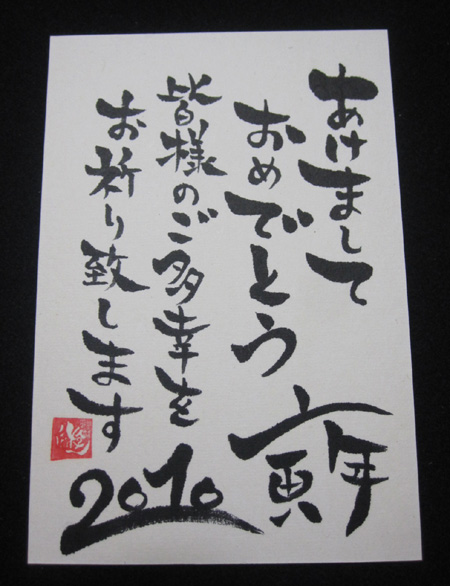 あけまして
おめでとう
寅年
皆様のご多幸を
お祈り致します
2010